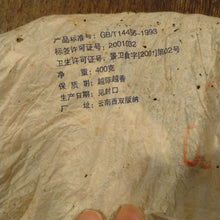 产品标准号：GB/T14456-1993
标签许可证号：2001032
卫生许可证号：景卫食字[2001]第02号
净　重：400克
保　质：越陈越香
生产日期：见封口
厂　址：云南西双版纳